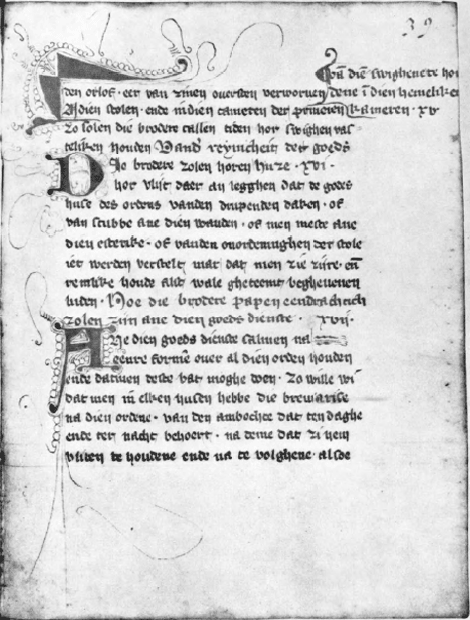 39
Van die swighene te hou
den orlof · eer van zinen oversten verworven dene i dien hemelike
Indien stolen · ende indien cameren der priveien kameren · xv
Zo solen die brodere callen tiden hor swighen vas
teliken houden Vand' reynicheit der goeds
Die brodere zolen horen huze · xvi ·
hor vlijt daer an legghen dat de godes
huse des ordens vanden drupenden daken · of
van stubbe ane dien wanden · of men meste ane
dien esterike · of vanden der stole
iet werden verstelt mat dat men zie
houde alst wale gheteemt beghevenen
luden · Hoe die brodere papen eendrachtich
zolen zijn ane dien goeds dienste · xvii ·
Ane dien goeds dienste salmen na
eenre forme over al dien orden houden
ende datmen deste bat moghe doen · Zo wille wi
dat men in elken husen hebbe die breviarise
na dien ordene · van den ambochte dat ten daghe
ende ter nacht behoert · na deme dat zi hem
vliten te houdene ende na te volghene · alsoe